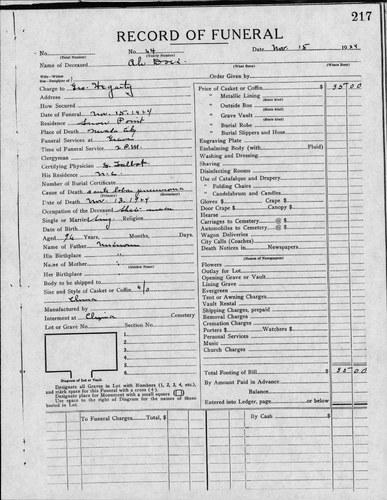 217
RECORD OF FUNERAL
No. No. 64 Date Nov. 15 1924
(Total Number) (Yearly Number)
Name of Deceased Ah
(What Race) (Where Born)
Wife—Widow
Son—Daughter of
Order Given by
Charge to Geo. Hegarty
Address
How Secured
Date of Funeral Nov. 15, 1924
Residence Point
Place of Death Nevada City
Funeral Services at Grave
Time of Funeral Service 2 P.M.
Clergyman
Certifying Physician Talbot
His Residence N.C.
Number of Burial Certificate
Cause of Death acute lobar pneumonia
Date of Death Nov. 13, 1924
Occupation of the Deceased
Single or Married
Date of Birth
Aged 74 Years, Months, Days.
Name of Father Unknown
His Birthplace "
Name of Mother "
(Maiden Name)
Her Birthplace
Body to be shipped to
Size and Style of Casket or Coffin 6/0
China
Interment at China Cemetery
Lot or Grave No. Section No.
1.
2.
3.
4.
5.
6.
Diagram of Lot or Vault
Designate all Graves in Lot with Numbers (1, 2, 3, 4, etc.),
and mark space for this Funeral with a cross (+).
Designate place for Monument with a small square
Use space to right of Diagram for names of those
buried in Lot.
Price of Casket or Coffin $ 35 00
" Metallic Lining
(State Kind)
" Outside Box
(State Kind)
" Grave Vault
(State Kind)
" Burial Robe
" Burial Slippers and Hose
Engraving Plate
Embalming Body (with Fluid)
Washing and Dressing
Shaving
Disinfecting Rooms
Use of Catafalque and Drapery
" Folding Chairs
" Candelabrum and Candles
Gloves $ Crape $
Door Crape $ Canopy $
Hearse
Carriages to Cemetery @ $
Automobiles to Cemetery @ $
Wagon Deliveries
City Calls (Coaches)
Death Notices in Newspapers
(Names of Newspapers)
Flowers
Outlay for Lot
Opening Grave or Vault
Lining Grave
Evergreen
Tent or Awning Charges
Vault Rental
Shipping Charges, prepaid
Removal Charges
Cremation Charges
Porters $ Watchers $
Personal Services
Music
Church Charges
Total Footing of Bill $ 35 00
By Amount Paid in Advance
Balance
Entered into Ledger, page or below
To Funeral Charges Total, $
By Cash $